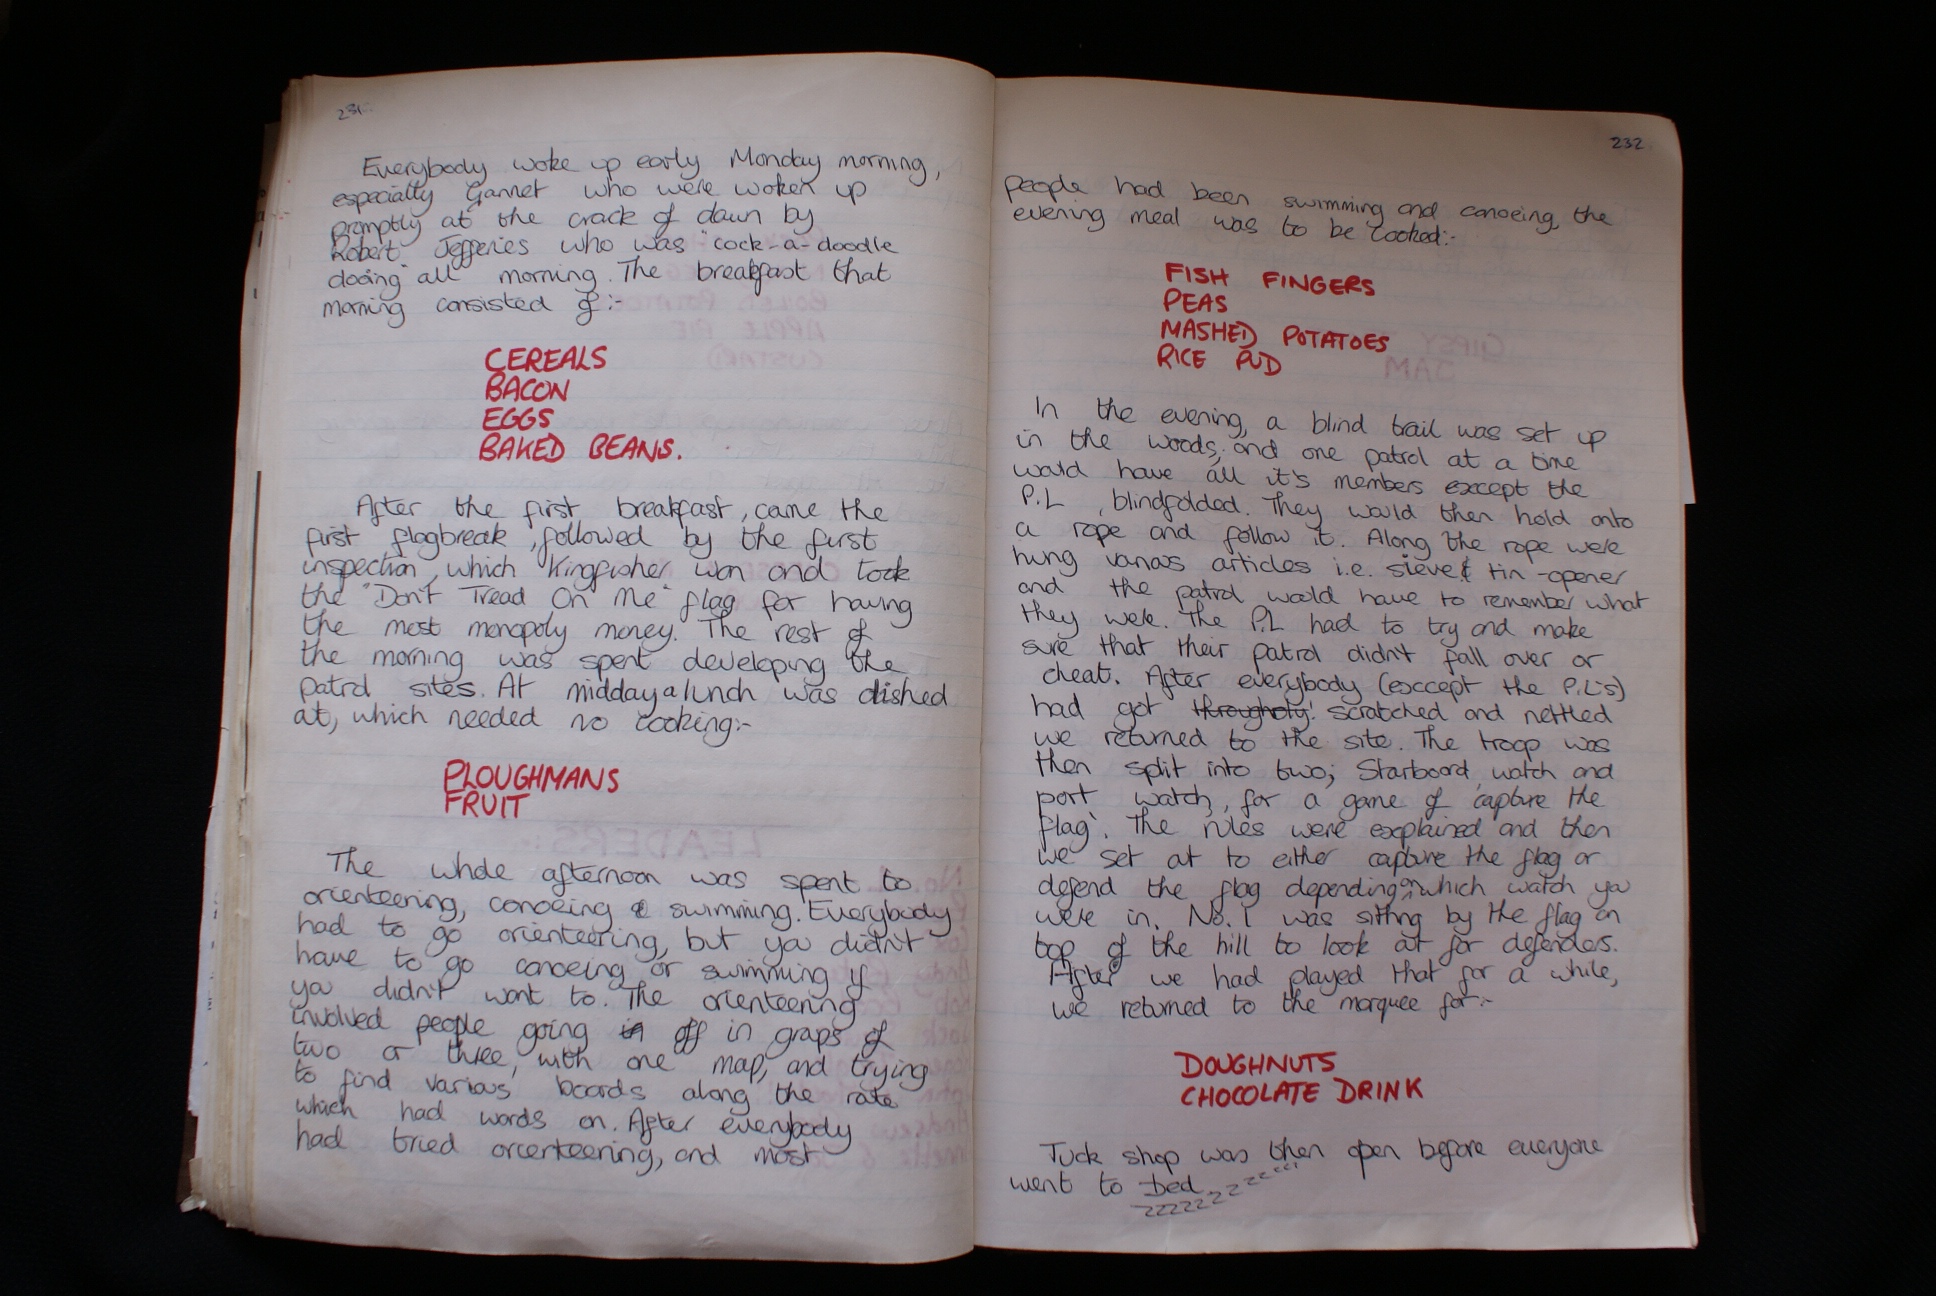 231.
Everybody woke up early Monday morning,
especially Gannet who were woken up
promptly at the crack of dawn by
Robert Jefferies who was "cock-a-doodle
doing" all morning. The breakfast that
morning consisted of:-
CEREALS
BACON
EGGS
BAKED BEANS.
After the first breakfast, came the
first flagbreak, followed by the first
inspection, which Kingfisher won and took
the "Don't Tread On Me" flag for having
the most monopoly money. The rest of
the morning was spent developing the
patrol sites. At midday a lunch was dished
out, which needed no cooking:-
PLOUGHMANS
FRUIT
The whole afternoon was spent to
orienteering, canoeing & swimming. Everybody
had to go orienteering, but you didn't
have to go canoeing or swimming if
you didn't want to. The orienteering
involved people going in off in groups of
two or three, with one map, and trying
to find various boards along the route
which had words on. After everybody
had tried orienteering, and most
232
people had been swimming and canoeing, the
evening meal was to be cooked:-
FISH FINGERS
PEAS
MASHED POTATOES
RICE PUD
In the evening, a blind trail was set up
in the woods, and one patrol at a time
would have all it's members except the
P.L, blindfolded. They would then hold onto
a rope and follow it. Along the rope were
hung various articles i.e. sieve & tin-opener
and the patrol would have to remember what
they were. The P.L had to try and make
sure that their patrol didn't fall over or
cheat. After everybody (exccept the P.L's)
had got througholy! scratched and nettled
we returned to the site. The troop was
then split into two; Starboard watch and
port watch, for a game of 'capture the
flag'. The rules were explained and then
we set out to either capture the flag or
defend the flag depending on which watch you
were in. No. 1 was sitting by the flag on
top of the hill to look out for defenders.
After we had played that for a while,
we returned to the marquee for:-
DOUGHNUTS
CHOCOLATE DRINK
Tuck shop was then open before everyone
went to bed zzzzzzzzzzzzzz